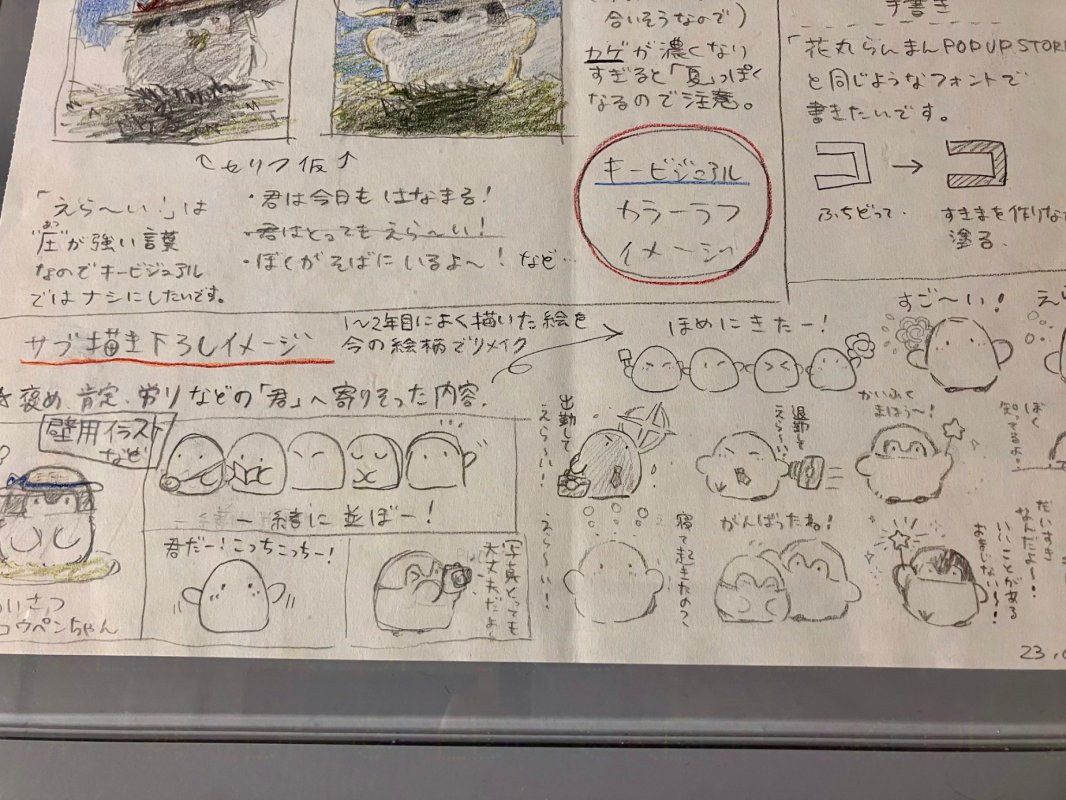 合いそうなので)
カゲが濃くなり
すぎると「夏」っぽく
なるので注意。
キービジュアル
カラーラフ
イメージ
手書き
「花丸らんまんPOP UP STORE
と同じようなフォントで
書きたいです。
コ → コ
ふちどって、
すきまを作りな
塗る。
↑セリフ仮↑
「えら〜い!」は
"圧"が強い言葉
あつ
なのでキービジュアル
ではナシにしたいです。
・君は今日もはなまる!
・君はとってもえら〜い!
・ぼくがそばにいるよ〜! など…
サブ描き下ろしイメージ
1〜2年目によく描いた絵を
今の絵柄でリメイク
褒め、肯定、労りなどの「君」へ寄りそった内容。
壁用イラスト
など
一緒に並ぼー!
君だー!こっちこっちー!
写真とっても
大丈夫だよ〜
あいさつ
コウペンちゃん
ほめにきたー!
すご〜い!
えら
出勤して
えら〜い!
退勤も
えら〜い!
かいふく
まほう〜!
ぼく
知ってるよ。
寝て起きたのっ
えら〜い!!
がんばったね!
だいすき
なんだよ〜!!
いいことがある
おまじない〜!!
23.